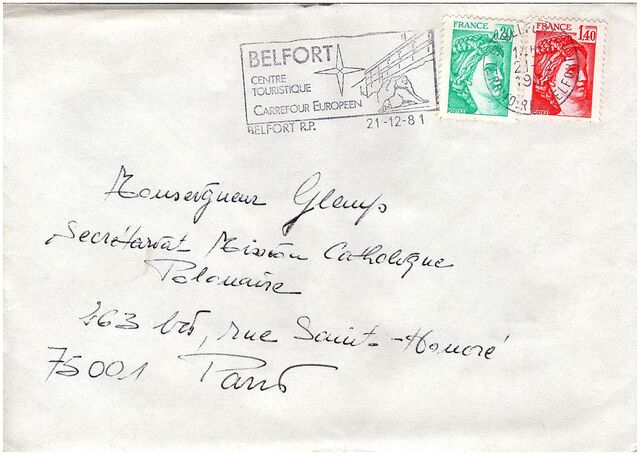 BELFORT
CENTRE
TOURISTIQUE
CARREFOUR EUROPEEN
BELFORT R.P.
21-12-81
FRANCE
0,20
POSTES
FRANCE
1,40
POSTES
BELFORT
21
Monseigneur Glemp
Secrétariat Mission Catholique
Polonaise
263 bis, rue Saint-Honoré
75001 Paris